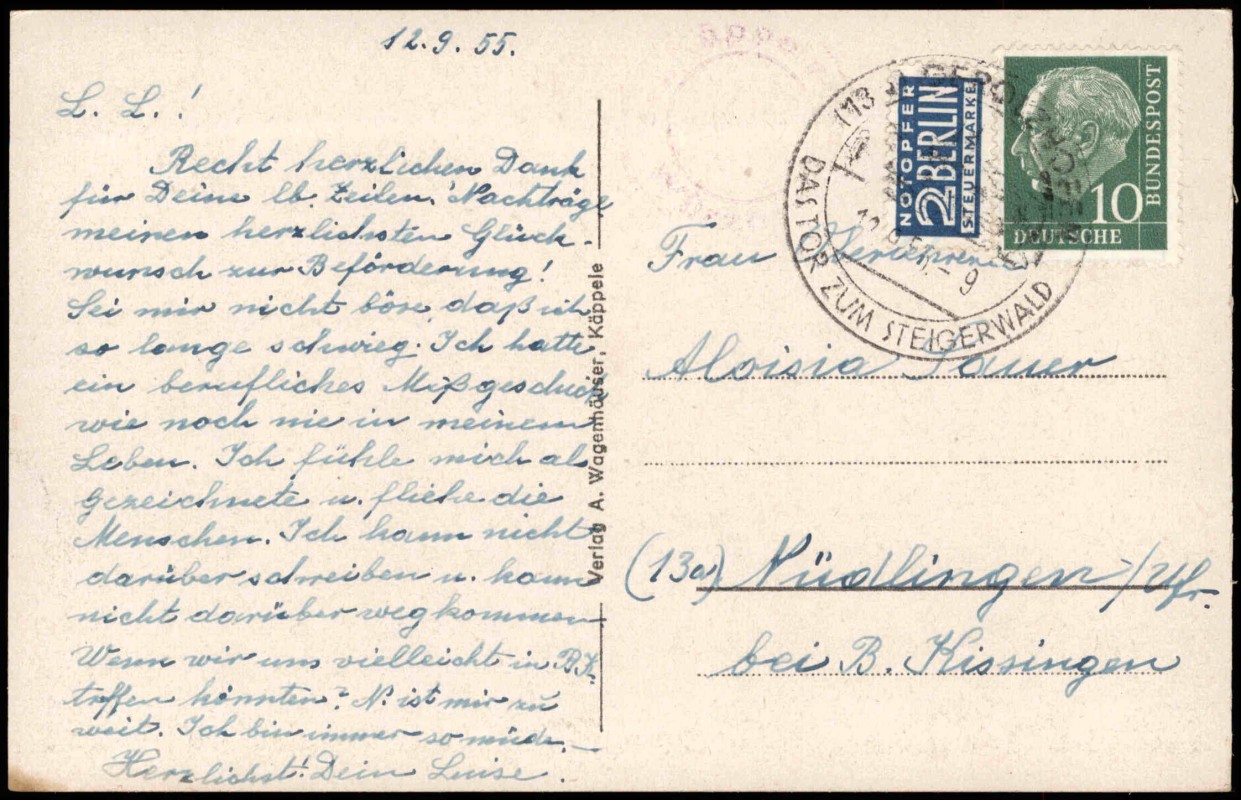 12.9.55.
L. L.!
Recht herzlichen Dank
für Deine lb. Zeilen. Nachträge
meinen herzlichsten Glück-
wunsch zur Beförderung!
Sei mir nicht böse, daß ich
so lange schwieg. Ich hatte
ein berufliches Mißgeschick
wie noch nie in meinem
Leben. Ich fühle mich als
Gezeichnete u. fliehe die
Menschen. Ich kann nicht
darüber schreiben u. kann
nicht darüber wegkommen
Wenn wir uns vielleicht in B.K.
treffen könnten? N. ist mir zu
weit. Ich bin immer so müde. –
Herzlichst! Dein Luise.
Verlag A. Wagenhäuser, Käppele
NOTOPFER
2 BERLIN
STEUERMARKE
BUNDESPOST
10
DEUTSCHE
(13
GEROLZHOFEN
DAS TOR ZUM STEIGERWALD
Frau
Aloisia Sauer
(13a) Nüdlingen/Ufr.
bei B. Kissingen